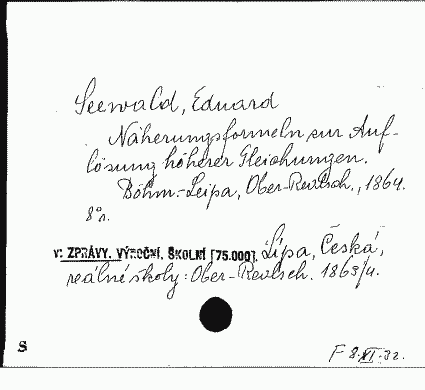 Seewald, Eduard
Näherungsformeln zur Auf-
lösung höherer Gleichungen.
Böhm.-Leipa, Ober-Realsch., 1864.
8°.
v: ZPRÁVY. VÝROČNÍ. ŠKOLNÍ [75.000]. Lípa, Česká,
reálné školy: Ober-Realsch. 1863/4.
S
F 8.XI.32.